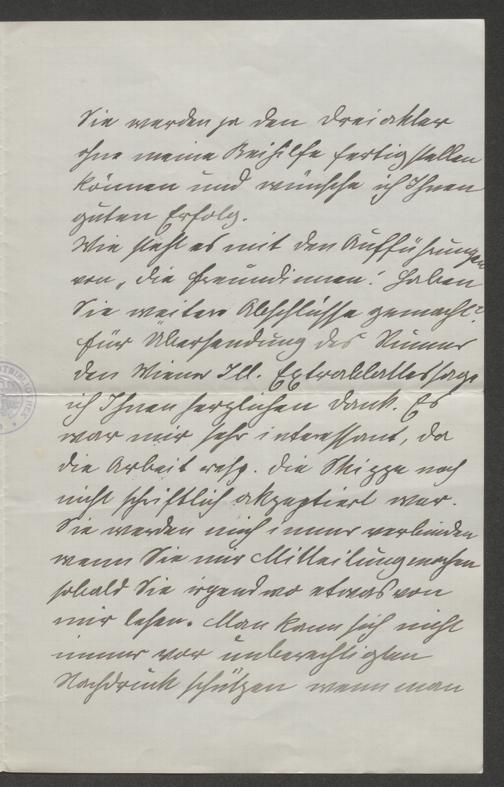 Sie werden ja den Dreiakter
ohne meine Beihilfe fertig stellen
können und wünsche ich Ihnen
guten Erfolg.
Wie steht es mit den Aufführungen
von „die Freundinnen“. Haben
Sie weitere Abschlüsse gemacht?
Für Übersendung des Nummer
den Wiener Ill. Extrablattes sage
ich Ihnen herzlichen Dank. Es
war mir sehr interessant, da
die Arbeit resp. die Skizze noch
nicht schriftlich akzeptiert war.
Sie werden mich immer verbinden
wenn Sie mir Mitteilung machen
sobald Sie irgendwo etwas von
mir lesen. Man kann sich nicht
immer vor unberechtigten
Nachdruck schützen wenn man